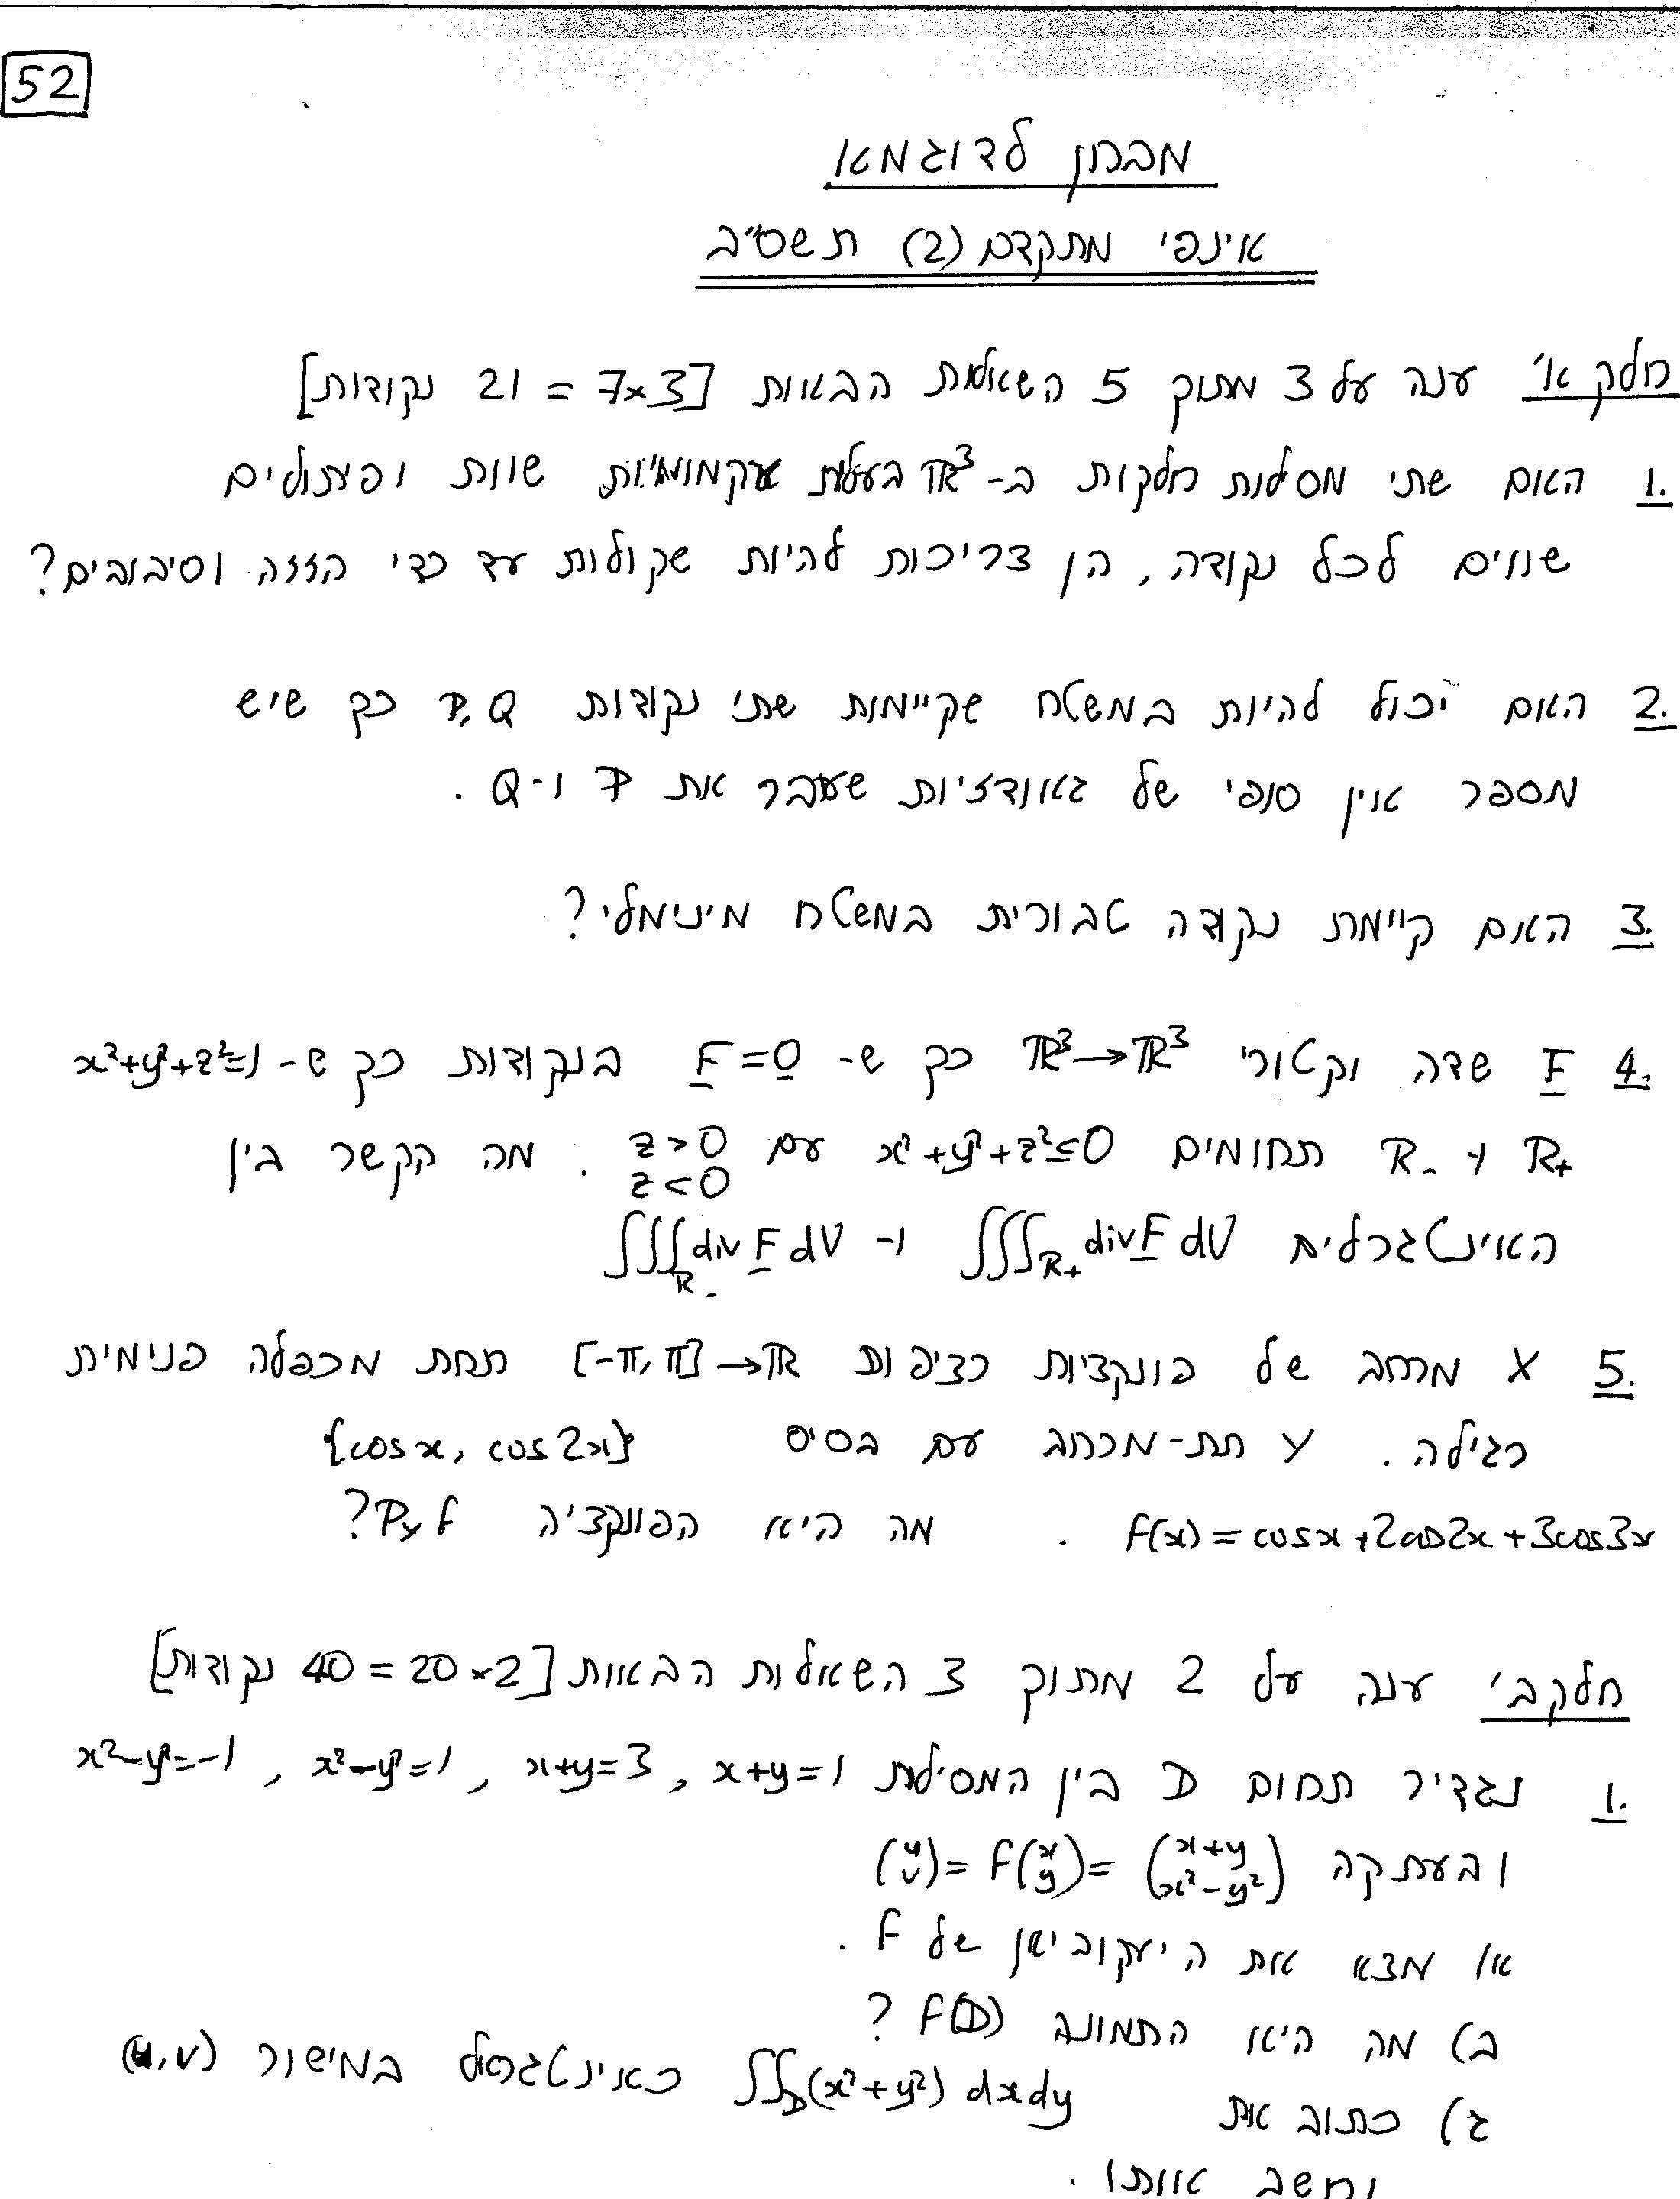 52
מבחן לדוגמא
אינפי מתקדם (2) תשס"ב
חלק א' ענה על 3 מתוך 5 השאלות הבאות [7x3 = 21 נקודות]
1. האם שתי מסילות חלקות ב-ℝ³ בעלות עקמומיות שוות ופיתולים
שווים לכל נקודה, הן צריכות להיות שקולות עד כדי הזזה וסיבובים?
2. האם יכול להיות במשטח שקיימות שתי נקודות P, Q כך שיש
מספר אין סופי של גאודזיות שעבר את P ו-Q.
3. האם קיימת נקודה טבורית במשטח מינימלי?
4. F שדה וקטורי ℝ³→ℝ³ כך ש- F=0 בנקודות כך ש- x²+y²+z²=1
R₊ ו R₋ תחומים x²+y²+z²≤0 עם z>0 . מה הקשר בין
z<0
האינטגרלים ∭_R₊ div F dV ו- ∭_R₋ div F dV
5. X מרחב של פונקציות רציפות [-π,π]→ℝ תחת מכפלה פנימית
רגילה. Y תת-מרחב עם בסיס {cosx, cos2x}
f(x) = cosx + 2cos2x + 3cos3x . מה היא הפונקציה P_Y f?
חלק ב' ענה על 2 מתוך 3 השאלות הבאות [20x2 = 40 נקודות]
1. נגדיר תחום D בין המסילות x+y=1, x+y=3, x²-y²=1, x²-y²=-1
ובעתקה (u v) = F(x y) = (x+y x²-y²)
א) מצא את היעקוביאן של F.
ב) מה היא התמונה F(D)?
ג) כתוב את ∬_D(x²+y²) dxdy כאינטגרל במישור (u,v)
וחשב אותו.